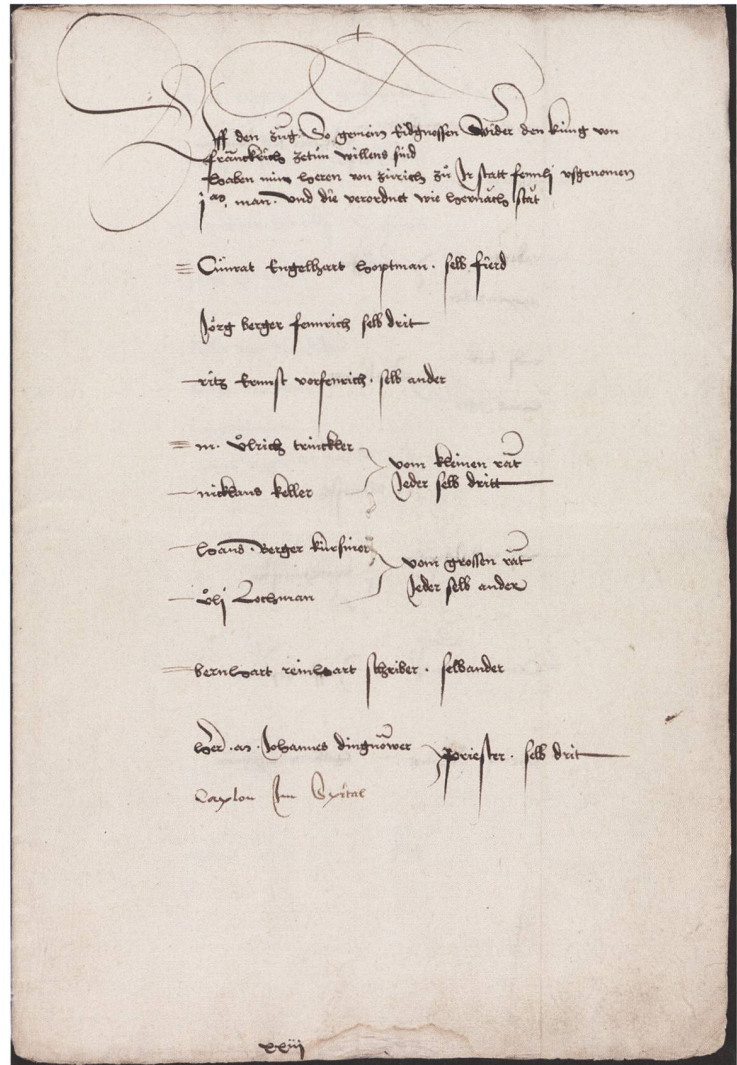 Uff den zug. So gemein Eidgnossen Wider den küng von
franckrich zetůn willens sind
haben min heren von zürich zů Jr statt fennli usgenomen
man. und die verordnet wie hernach stat
Cůnrat Engelhart hoptman. selb fierd
Jörg berger fennrich selb drit
ritz Ernnst vorfenrich. selb ander
m. ůlrich trinckler
vom kleinen rat
nicklaus keller
Jeder selb dritt
hans. Berger kürsiner
vom grossen rat
Jeder selb ander
ůli Lochman
bernhart reinhart schriber. selbander
her. Johannes dingnower
priester. selb drit
Jm Spital
xxiii